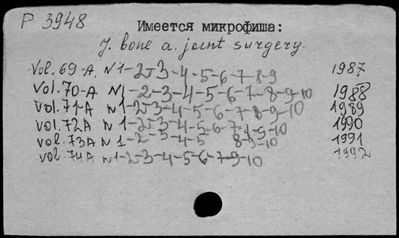 P 3948
Имеется микрофиша:
J. bone a. joint surgery.
Vol. 69-A, N 1-2-3-4-5-6-7-8-9 1987
Vol. 70-A N 1-2-3-4-5-6-7-8-9-10 1988
Vol. 71-A N 1-2-3-4-5-6-7-8-9-10 1989
Vol. 72A N 1-2-3-4-5-6-7-8-9-10 1990
Vol. 73A N 1-2-3-4-5 8-9-10 1991
Vol 74A N 1-2-3-4-5-6-7-9-10 1992